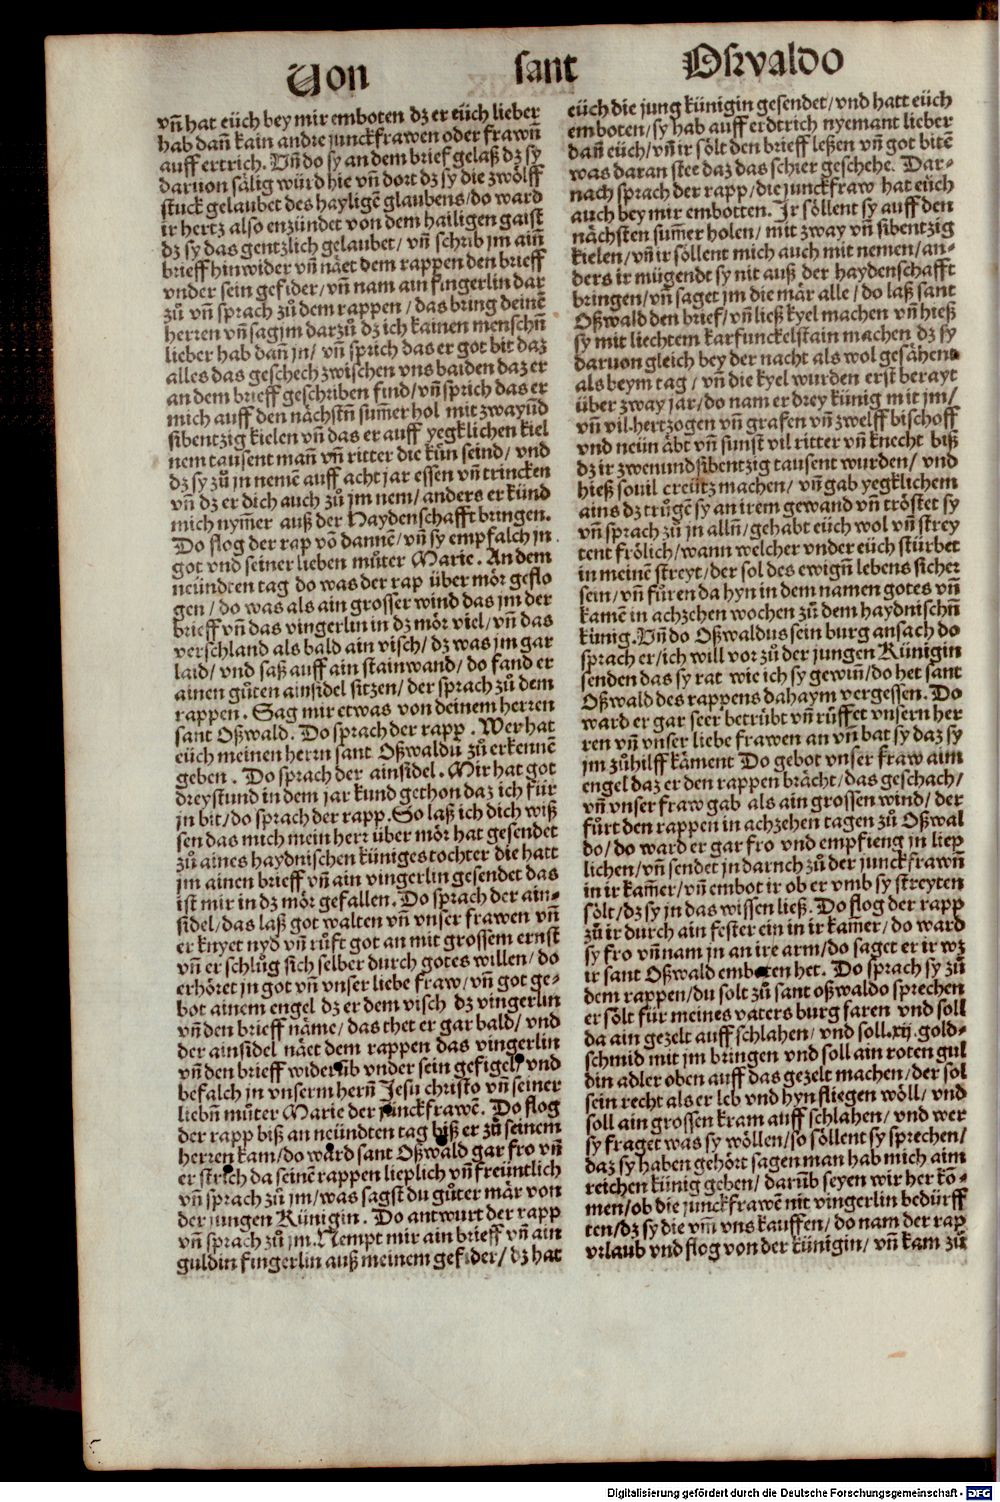 Von sant Oßwaldo
vn̄ hat eüch bey mir emboten dz er eüch lieber
hab dan̄ kain andre junckfrawen oder frawn̄
auff ertrich. Vn̄ do sy an dem brief gelaß dz sy
daruon sälig würd hie vn̄ dort dz sy die zwölff
stuck gelaubet des hayligē glaubens/do ward
ir hertz also enzündet von dem hailigen gaist
dz sy das gentzlich gelaubet/ vn̄ schrib jm ain̄
brieff hinwider vn̄ näet dem rappen den brieff
vnder sein gefider/vn̄ nam ain fingerlin dar
zů vn̄ sprach zů dem rappen/das bring deinē
herren vn̄ sag jm darzů dz ich kainen menschn̄
lieber hab dan̄ jn/ vn̄ sprich das er got bit daz
alles das geschech zwischen vns baiden daz er
an dem brieff geschriben find/vn̄ sprich das er
mich auff den nächstn̄ sum̄er hol mit zwayūd
sibentzig kielen vn̄ das er auff yegklichen kiel
nem tausent man̄ vn̄ ritter die kün seind/ vnd
dz sy zů jn nemē auff acht jar essen vn̄ trincken
vn̄ dz er dich auch zů jm nem/ anders er künd
mich nym̄er auß der Haydenschafft bringen.
Do flog der rap vō dannē/vn̄ sy empfalch jn
got vnd seiner lieben můter Marie. An dem
neündten tag do was der rap über mör geflo
gen/do was als ain grosser wind das jm der
brieff vn̄ das vingerlin in dz mör viel/vn̄ das
verschland als bald ain visch/dz was jm gar
laid/vnd saß auff ain stainwand/do fand er
ainen gůten ainsidel sitzen/der sprach zů dem
rappen. Sag mir etwas von deinem herren
sant Oßwald. Do sprach der rapp. Wer hat
eüch meinen herrn sant Oßwaldū zů erkennē
geben. Do sprach der ainsidel. Mir hat got
dreystund in dem jar kund gethon daz ich für
jn bit/do sprach der rapp. So laß ich dich wiß
sen das mich mein herr über mör hat gesendet
zů aines haydnischen küniges tochter die hatt
jm ainen brieff vn̄ ain vingerlin gesendet das
ist mir in dz mör gefallen. Do sprach der ain-
sidel/das laß got walten vn̄ vnser frawen vn̄
er knyet nyd vn̄ růft got an mit grossem ernst
vn̄ er schlůg sich selber durch gotes willen/do
erhöret jn got vn̄ vnser liebe fraw/vn̄ got ge-
bot ainem engel dz er dem visch dz vingerlin
vn̄ den brieff näme/das thet er gar bald/ vnd
der ainsidel näet dem rappen das vingerlin
vn̄ den brieff widerūb vnder sein gefigel/ vnd
befalch jn vnserm hern̄ Jesu christo vn̄ seiner
liebn̄ můter Marie der junckfrawē. Do flog
der rapp biß an neündten tag biß er zů seinem
herren kam/do ward sant Oßwald gar fro vn̄
er strich da seinē rappen lieplich vn̄ freüntlich
vn̄ sprach zů jm/was sagst du gůter mär von
der jungen Künigin. Do antwurt der rapp
vn̄ sprach zů jm. Nempt mir ain brieff vn̄ ain
guldin fingerlin auß meinem gefider/dz hat
eüch die jung künigin gesendet/vnd hatt eüch
emboten/sy hab auff erdtrich nyemant lieber
dan̄ eüch/vn̄ ir sölt den brieff leßen vn̄ got bitē
was daran stee daz das schier geschehe. Dar-
nach sprach der rapp/die junckfraw hat eüch
auch bey mir embotten. Ir söllent sy auff den
nächsten sum̄er holen/ mit zway vn̄ sibentzig
kielen/vn̄ ir söllent mich auch mit nemen/an-
ders ir mügendt sy nit auß der haydenschafft
bringen/vn̄ saget jm die mär alle/do laß sant
Oßwald den brief/vn̄ ließ kyel machen vn̄ hieß
sy mit liechtem karfunckelstain machen dz sy
daruon gleich bey der nacht als wol gesähend
als beym tag/vn̄ die kyel wurden erst berayt
über zway jar/do nam er drey künig mit jm/
vn̄ vil hertzogen vn̄ grafen vn̄ zwelff bischoff
vnd neün äbt vn̄ sunst vil ritter vn̄ knecht biß
dz ir zwenundsibentzig tausent wurden/ vnd
hieß souil creütz machen/ vn̄ gab yegklichem
ains dz trůgē sy an irem gewand vn̄ tröstet sy
vn̄ sprach zů jn alln̄/gehabt eüch wol vn̄ strey
tent frölich/wann welcher vnder eüch stürbet
in meinē streyt/der sol des ewign̄ lebens sicher
sein/vn̄ füren da hyn in dem namen gotes vn̄
kamē in achzehen wochen zů dem haydnischn̄
künig. Vn̄ do Oßwaldus sein burg ansach do
sprach er/ich will vor zů der jungen Künigin
senden das sy rat wie ich sy gewin̄/do het sant
Oßwald des rappens dahaym vergessen. Do
ward er gar seer betrübt vn̄ rüffet vnsern her
ren vn̄ vnser liebe frawen an vn̄ bat sy daz sy
jm zů hilff käment Do gebot vnser fraw aim
engel daz er den rappen brächt/das geschach/
vn̄ vnser fraw gab als ain grossen wind/ der
fůrt den rappen in achzehen tagen zů Oßwal
do/do ward er gar fro vnd empfieng jn liep
lichen/vn̄ sendet jn darnch zů der junckfrawn̄
in ir kam̄er/vn̄ embot ir ob er vmb sy streyten
sölt/dz sy jn das wissen ließ. Do flog der rapp
zů ir durch ain fester ein in ir kam̄er/do ward
sy fro vn̄ nam jn an ire arm/do saget er ir wz
ir sant Oßwald emboten het. Do sprach sy zů
dem rappen/du solt zů sant oßwaldo sprechen
er sölt für meines vaters burg faren vnd soll
da ain gezelt auff schlahen/ vnd soll .xij. gold-
schmid mit jm bringen vnd soll ain roten gul
din adler oben auff das gezelt machen/der sol
sein recht als er leb vnd hyn fliegen wöll/ vnd
soll ain grossen kram auff schlahen/ vnd wer
sy fraget was sy wöllen/so söllent sy sprechen/
daz sy haben gehört sagen man hab mich aim
reichen künig geben/ darūb seyen wir her kō-
men/ob die junckfrawē nit vingerlin bedürff
ten/dz sy die vm̄ vns kauffen/do nam der rap
vrlaub vnd flog von der künigin/ vn̄ kam zů
Digitalisierung gefördert durch die Deutsche Forschungsgemeinschaft - DFG